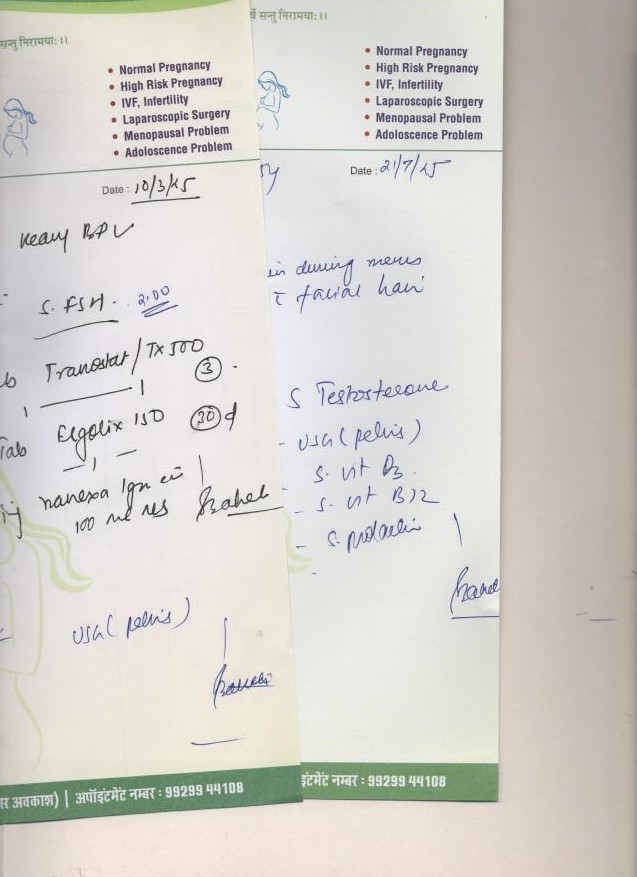 सन्तु निरामयाः।।
• Normal Pregnancy
• High Risk Pregnancy
• IVF, Infertility
• Laparoscopic Surgery
• Menopausal Problem
• Adoloscence Problem
Date : 10/3/25
Heavy BPV
S. FSH. 2.00
Tranostat / Tx 500
3
Tab Elgolix 150 30 d
100 ml NS
USG (pelvis)
र अवकाश) | अपॉइंटमेंट नम्बर : 99299 44108
सन्तु निरामयाः।।
• Normal Pregnancy
• High Risk Pregnancy
• IVF, Infertility
• Laparoscopic Surgery
• Menopausal Problem
• Adoloscence Problem
Date : 21/7/25
in during menses
facial hair
S Testosterone
- USG (pelvis)
S. vit D3.
- S. vit B12
- S. prolactin
इंटमेंट नम्बर : 99299 44108